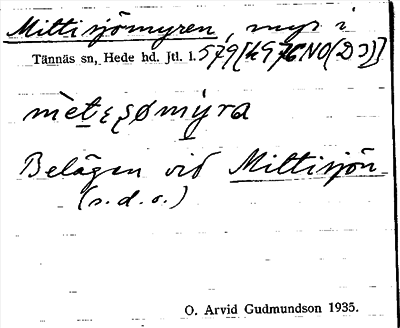 Mittisjömyren, myr i
Tännäs sn, Hede hd. Jtl. 1. 579[H976NO(D3)]
mètesømýra
Belägen vid Mittisjön
(s.d.o.)
O. Arvid Gudmundson 1935.